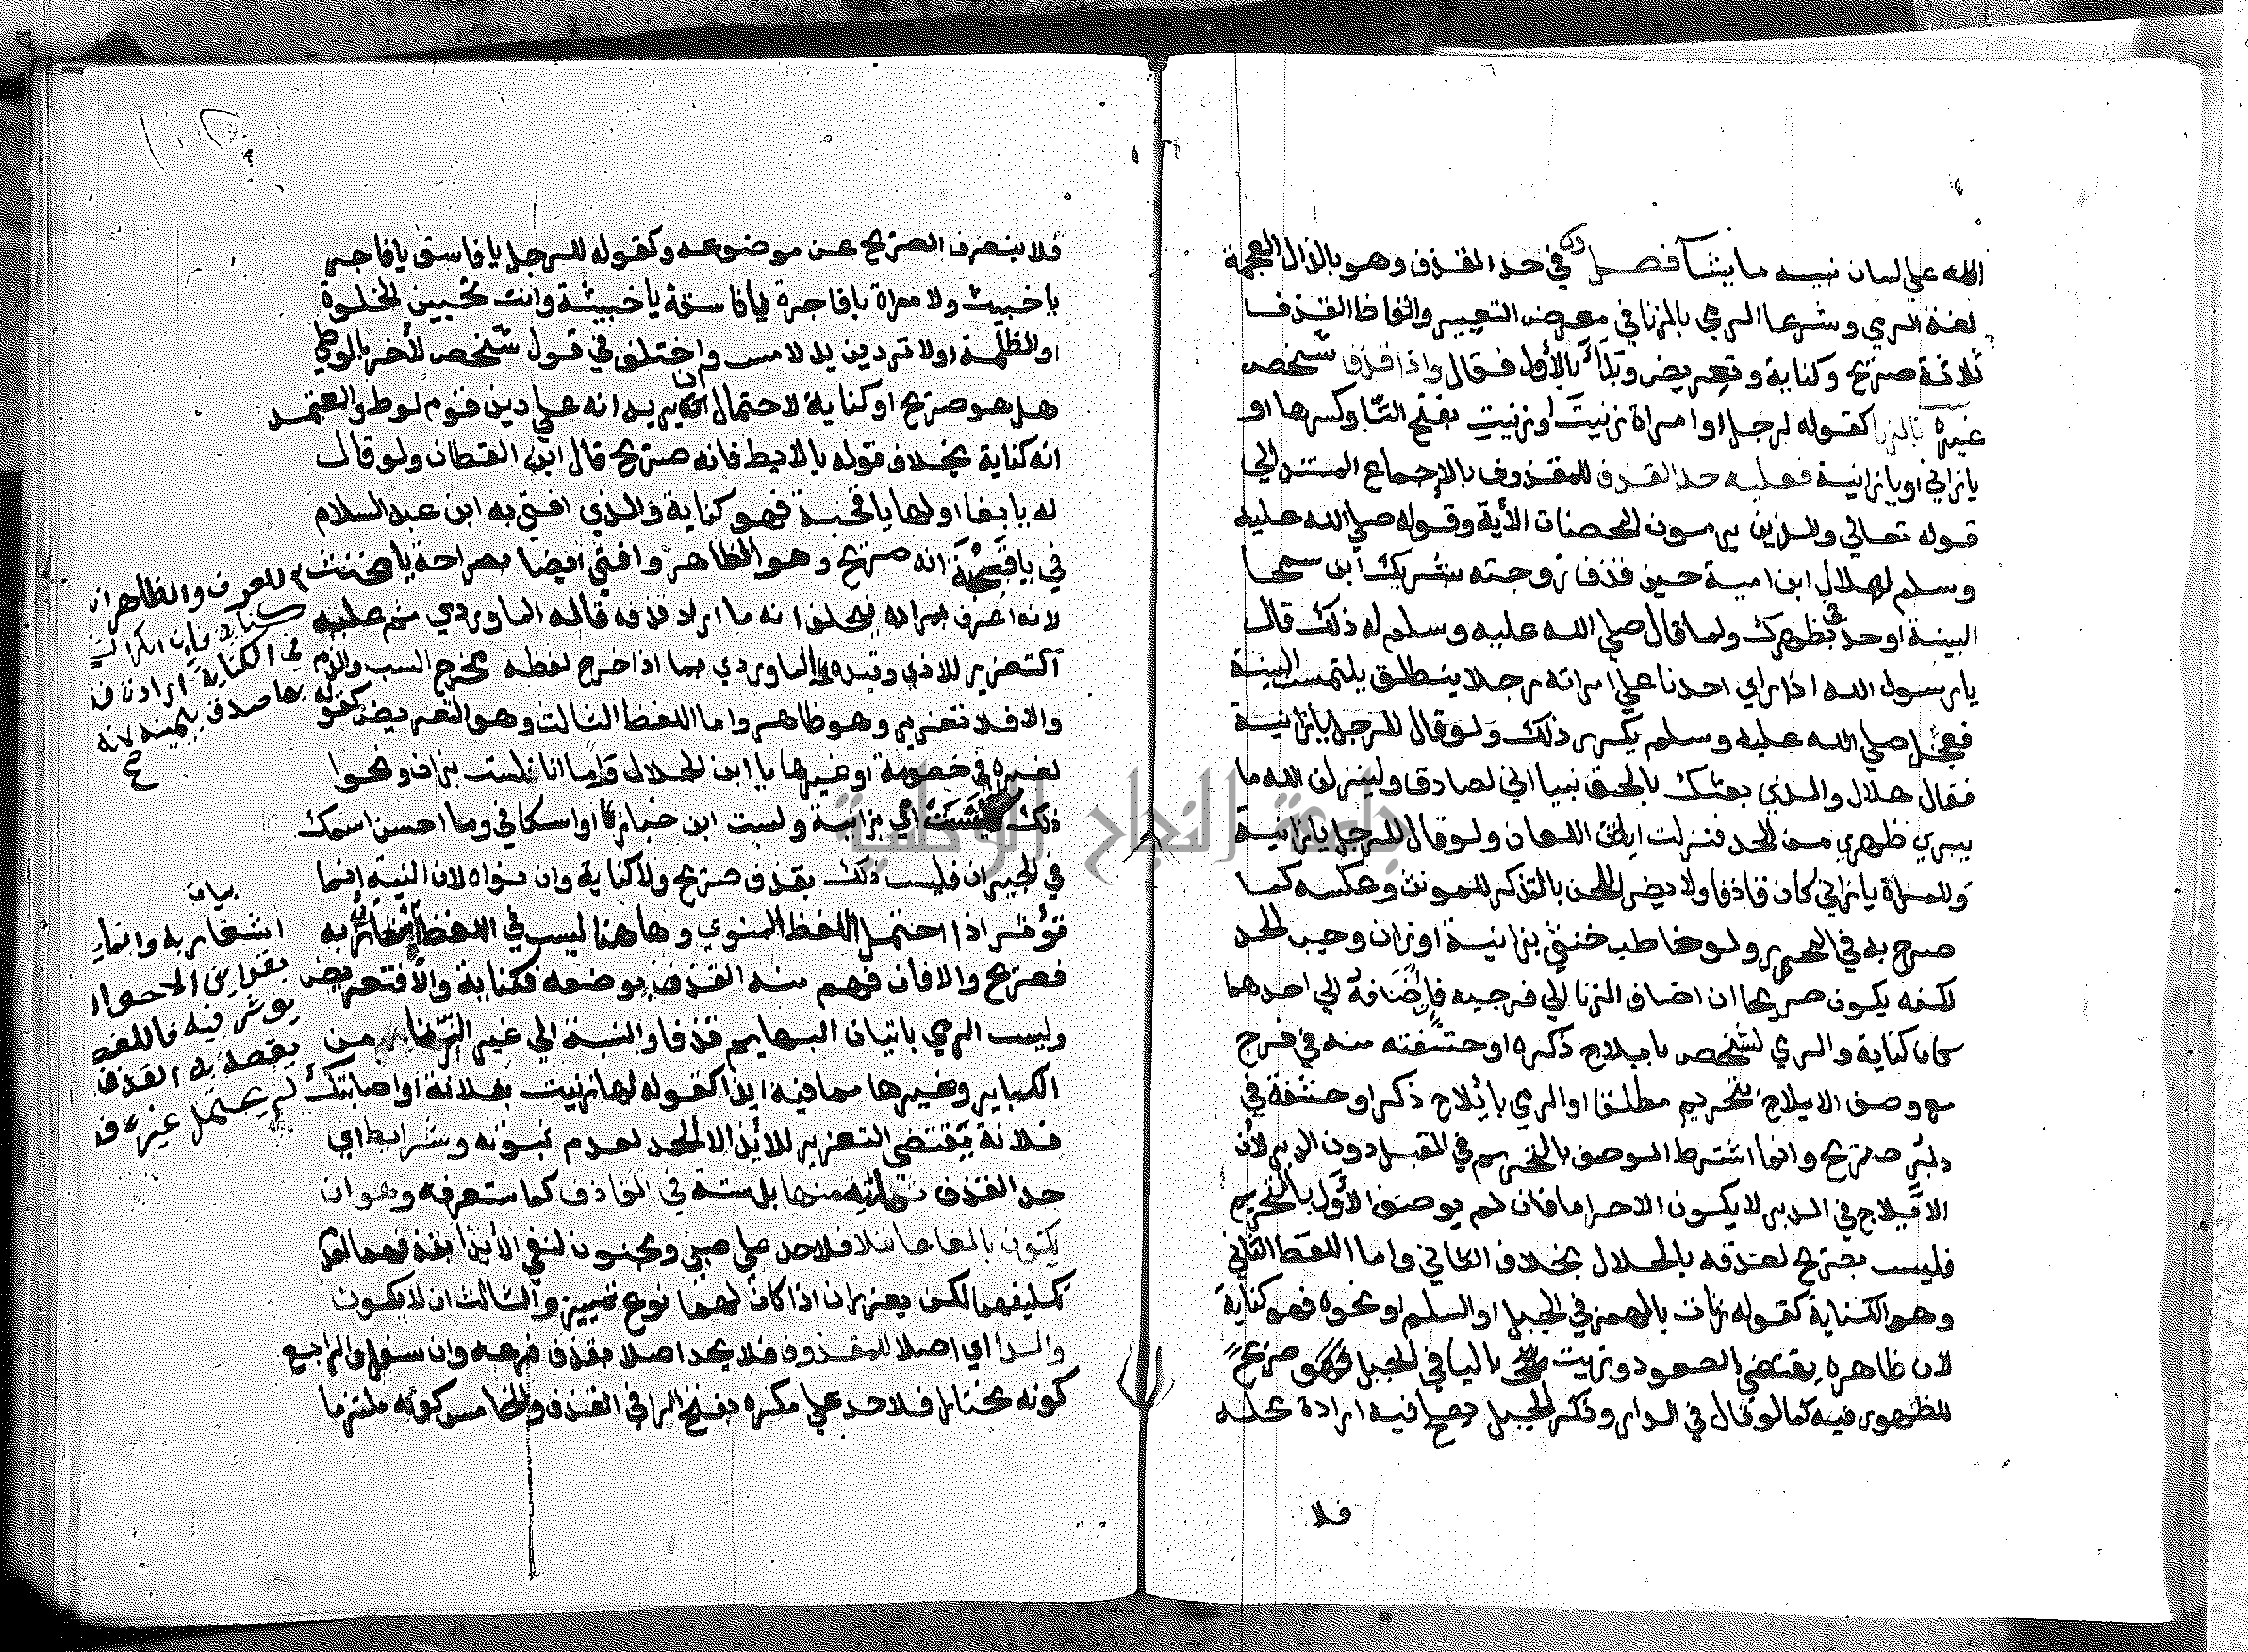 الله علي لسان نبيه ما يشا فصل في حد القذف وهو بالذال المعجمة
لغة الرمي وشرعا الرمي بالزنا في معرض التعيير والفاظ القذف
ثلاثة صريح وكناية وتعريض وبدأ بالأول فقال واذا قذف شخص
غيره بالزنا كقوله لرجل او امراة زنيتَ او زنيتِ بفتح التا وكسرها او
يا زاني او يا زانية فعليه حد القذف للمقذوف بالإجماع المستند الي
قوله تعالي والذين يرمون المحصنات الأية وقوله صلي الله عليه
وسلم لهلال ابن امية حين قذف زوجته بشريك ابن سحما
البينة او حد في ظهرك ولما قال صلي الله عليه وسلم له ذلك قال
يا رسول الله اذا راي احدنا علي امراته رجلا ينطلق يلتمس البينة
فجعل صلي الله عليه وسلم يكرر ذلك ولو قال للرجل يا زانية
فقال هلال والذي بعثك بالحق نبيا اني لصادق ولينزلن الله ما
يبري ظهري من الحد فنزلت اية اللعان ولو قال للرجل يا زانية
وللمراة يا زاني كان قاذفا ولا يضر اللحن بالتذكير للمونث وعكسه كما
صرح به في المحرر ولو خاطب خنثي بزانية او زان وجب الحد
لكنه يكون صريحا ان اضاف الزنا الي فرجيه فإن أضافه الي احدهما
كان كناية والرمي لشخص بايلاج ذكره او حشفته منه في فرج
مع وصف الايلاج بتحريم مطلقا او الرمي بإيلاج ذكر او حشفة في
دبر صريح وانما اشترط الوصف بالتحريم في القبل دون الدبر لأن
الايلاج في الدبر لا يكون الا حراما فان لم يوصف الأول بالتحريم
فليس بصريح لصدقه بالحلال بخلاف الثاني واما اللفظ الثاني
وهو الكناية كقوله زنات بالهمز في الجبل او السلم او نحوه فهو كناية
لان ظاهره يقتضي الصعود وزنيت باليا في الجبل فهو صريح
للظهور فيه كما لو قال في الدار وذكر الجبل يصلح فيه ارادة محله
فلا
فلا ينصرف الصريح عن موضوعه وكقوله للرجل يا فاسق يا فاجر
يا خبيث ولامراة يا فاجرة يا فاسقة يا خبيثة وانت تحبين الخلوة
او الظلمة او لا تردين يد لامس واختلف في قول شخص لأخر يا لوطي
هل هو صريح او كناية لاحتمال ان يريد انه علي دين قوم لوط والمعتمد
انه كناية بخلاف قوله يا لايط فانه صريح قال ابن القطان ولو قال
له يا بغا او لها يا قحبة فهو كناية والذي افتي به ابن عبد السلام
في يا قحبة انه صريح وهو الظاهر وافتي ايضا بصراحة يا مخنث
للعرف والظاهر انه
كناية فان انكر الـ
في الكناية ارادة قذ
بها صدق بيمينه لانه
صح
لانه اعرف بمراده فيحلف انه ما اراد قذفه قاله الماوردي ثم عليه
التعزير للاذي وقيده الماوردي بما اذا خرج لفظه مخرج السب والذم
والا فلا تعزير وهو ظاهر واما اللفظ الثالث وهو التعريض كقوله
لغيره في خصومة او غيرها يا ابن الحلال واما انا فلست بزان ونحوا
ذلك كليست امي بزانية ولست ابن خباز او اسكافي وما احسن اسمك
في الجيران فليس ذلك بقذف صريح ولا كناية وان نواه لان النية انما
تؤثر اذا احتمل اللفظ المنوي وها هنا ليس في اللفظ اشعار به
بيان
اشعار به وانما
بقراين الاحوال
يوثر فيه فاللفظ
يقصد به القذف
لم يحتمل غيره فـ
فصريح والا فان فهم منه القذف بوضعه فكناية والا فتعريض
وليس الرمي باتيان البهايم قذفا والنسبة الي غير الزنا من
الكباير وغيرها مما فيه ايذا كقوله لها زنيت بفلانة او اصابتك
فلانة يقتضي التعزير للايذا لا الحد لعدم ثبوته وشرايط اي
حد القذف ثمانية منها بل ستة في القاذف كما ستعرفه وهو ان
يكون بالغا عاقلا فلا حد علي صبي ومجنون لنفي الأيذا بقذفهما لعدم
تكليفهما لكن يعزران اذا كان لهما نوع تمييز والثالث ان لا يكون
والدا اي اصلا للمقذوف فلا يحد اصلا بقذف فرعه وان سفل والرابع
كونه مختارا فلا حد علي مكره بفتح الرا في القذف والخامس كونه ملتزما
جامعة النجاح الوطنية